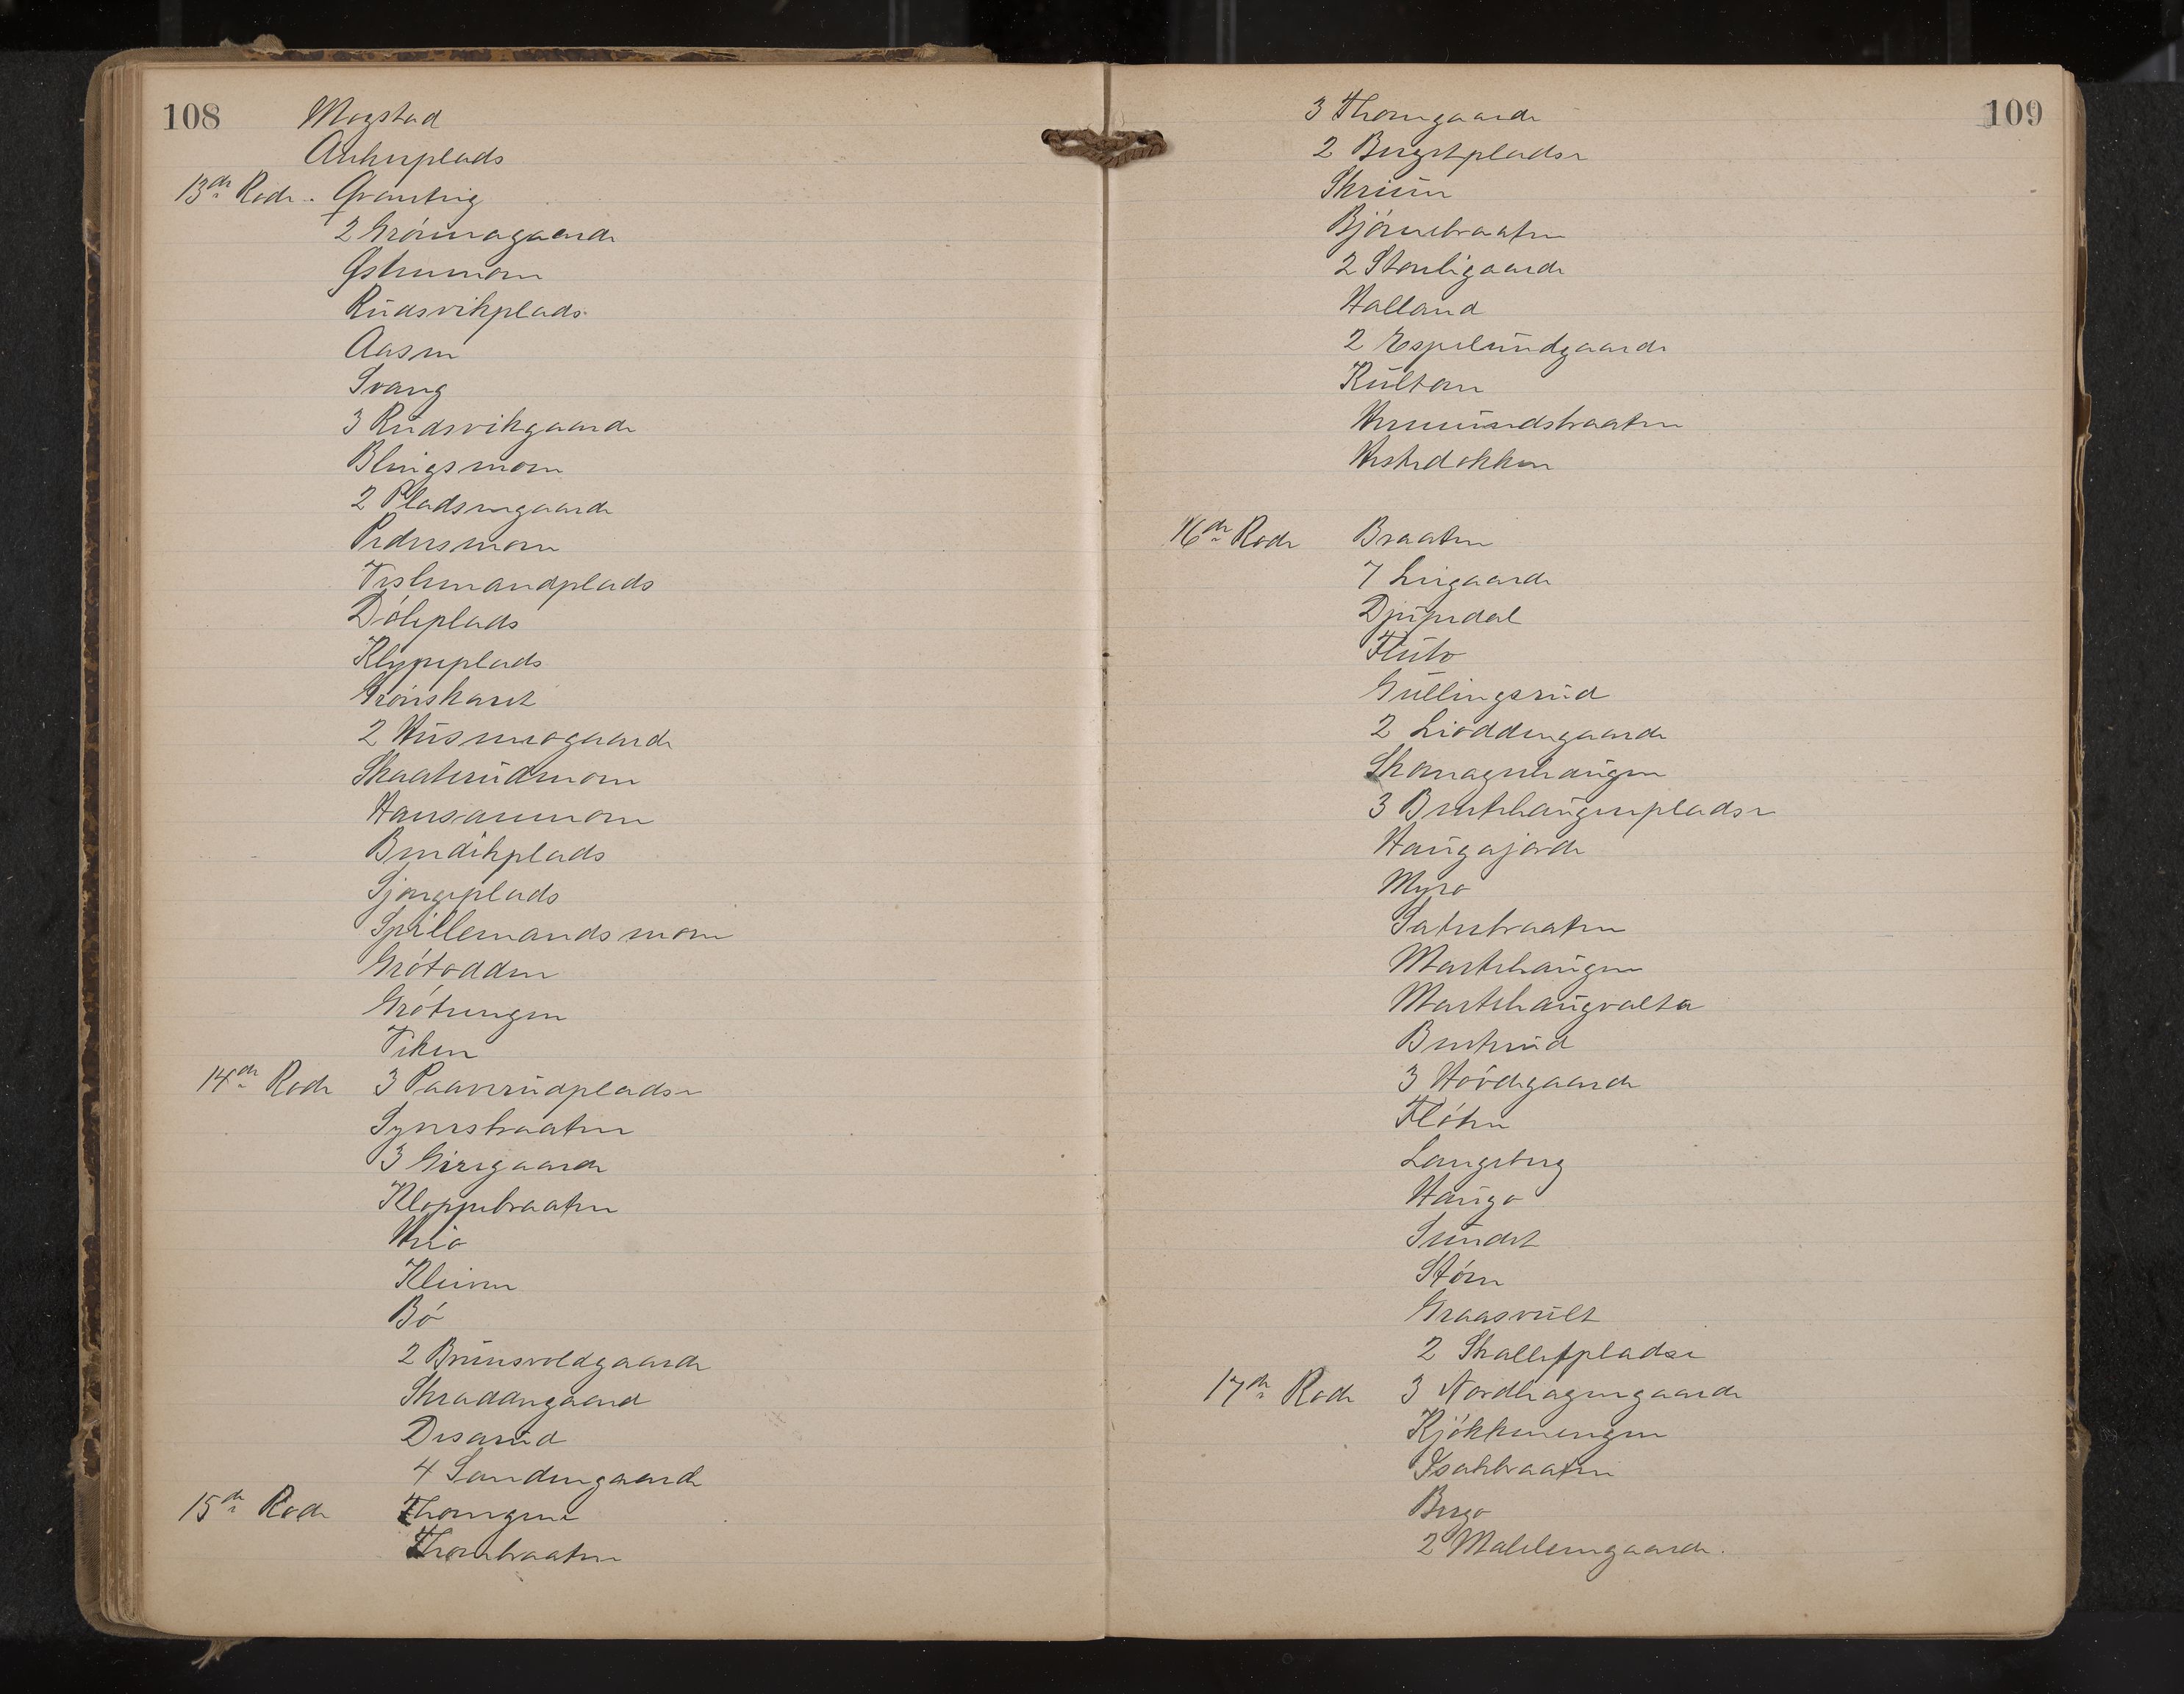 108
Mogstad
Ankerplads
13de Rode. Grantrig
2 Grönnagaarde
Gstenmoen
Rudsvikplads
Aasen
Svang
3 Rudsvikgaarde
Blingsmoen
2 Pladsengaarde
Pedersmoen
Teslemandplads
Döleplads
Klypeplads
Grönskaret
2 Husmogaarde
Skaaterudmoen
Hansanmoen
Bendikplads
Sjongeplads
Spillemandsmoen
Grötodden
Grötungen
Teken
14de Rode 3 Paaverudpladse
Synersbraaten
3 Girigaarde
Kloppebraaten
Hiio
Kleiven
Bö
2 Brunsvoldgaarde
Skraddergaard
Desarud
4 Sandengaarde
15de Rode Thoengene
Thoenbraaten
109
3 Thoengaarde
2 Bergetpladse
Skriun
Björnebraaten
2 Stenligaarde
Halland
2 Espelundgaarde
Kulton
Hermundsbraaten
Vestedokken
16de Rode Braaten
7 Liegaarde
Djupedal
Fluto
Gullingsrud
2 Lioddengaarde
Skomagerhaugen
3 Bentehaugenpladse
Haugajorde
Myro
Saterbraaten
Martehaugen
Martehaugvolta
Benterud
3 Hövdegaarde
Flöten
Langeberg
Haugo
Sundet
Stöen
Graasvult
2 Skalletpladse
17de Rode 3 Nordhagengaarde
Kjökkenengen
Isakbraaten
Bergo
2 Mehlemgaarde.